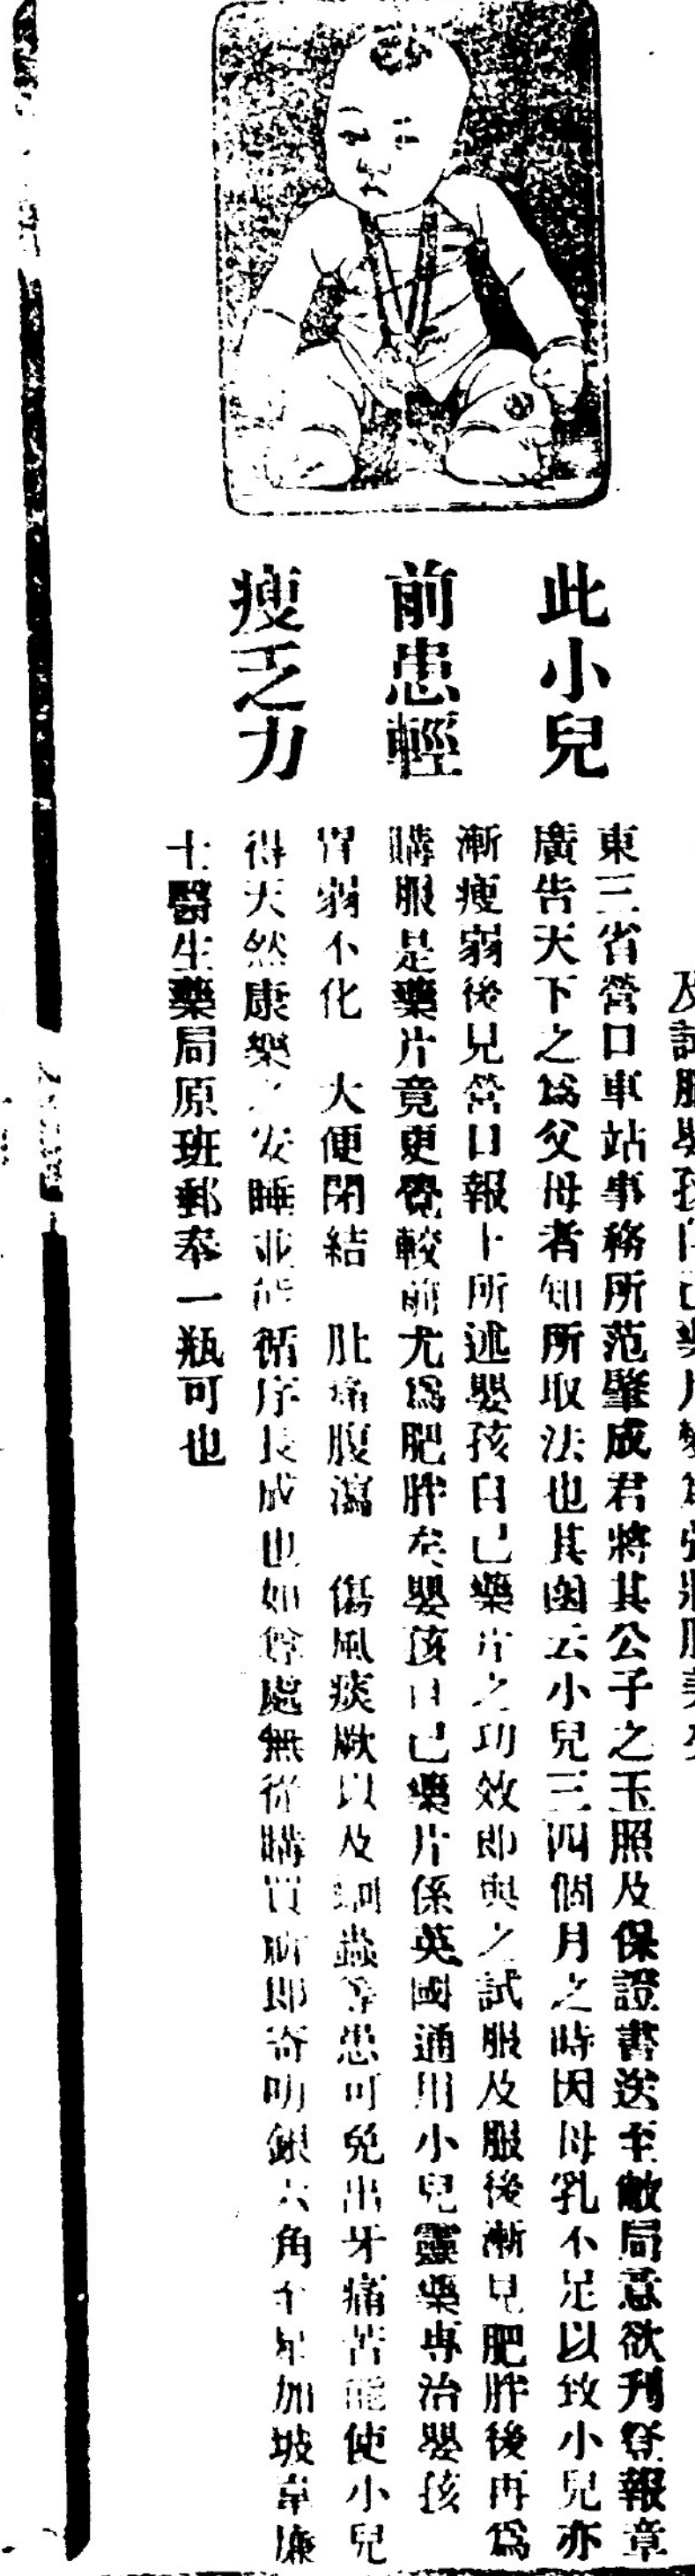 此小兒
前患輕
瘦乏力
及試服嬰孩自己藥片變為強壯肥美
東三省營口車站事務所范肇成君將其公子之玉照及保證書送至敝局意欲刊登報章
廣告天下之為父母者知所取法也其函云小兒三四個月之時因母乳不足以致小兒亦
漸瘦弱後見營口報上所述嬰孩自己藥片之功效即與之試服及服後漸見肥胖後再為
購服是藥片竟更覺較前尤為肥胖矣嬰孩自己藥片係英國通用小兒靈藥專治嬰孩
胃弱不化　大便閉結　肚痛腹瀉　傷風痰厥以及蛔蟲等患可免出牙痛苦能使小兒
得天然康樂之安睡並能循序長成也如尊處無從購買祈即寄叻銀六角至星加坡韋廉
士醫生藥局原班郵奉一瓶可也